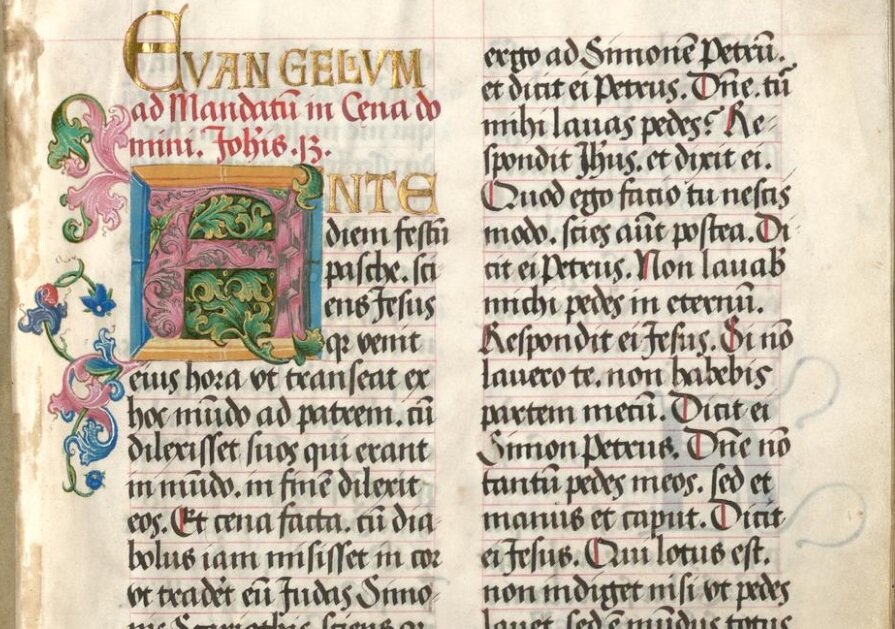 EVANGELIVM
ad Mandatū in Cena do
mini. Joh̄is. 13.
ANTE
diem festū
pasche. sci
ens Jesus
qꝛ venit
eius hora vt transeat ex
hoc mūdo ad patrem. cū
dilexisset suos qui erant
in mūdo. in finē dilexit
eos. Et cena facta. cū dia-
bolus iam misisset in cor
vt tradēt eū Judas Simo-
nis Scariothis. sciens qꝛ
ergo ad Simonē Petrū.
et dicit ei Petrus. Dn̄e. tū
mihi lavas pedes? Re-
spondit Jh̄us. et dixit ei.
Quod ego facio tu nescis
modo. scies aūt postea. Di-
cit ei Petrus. Non lavab
michi pedes in eternū.
Respondit ei Jesus. Si nō
lavero te. non habebis
partem mecū. Dicit ei
Simon Petrus. Dn̄e nō
tantū pedes meos. sed et
manus et caput. Dicit
ei Jesus. Qui lotus est.
non indiget nisi vt pedes
lavet. sed ē mūdus totus